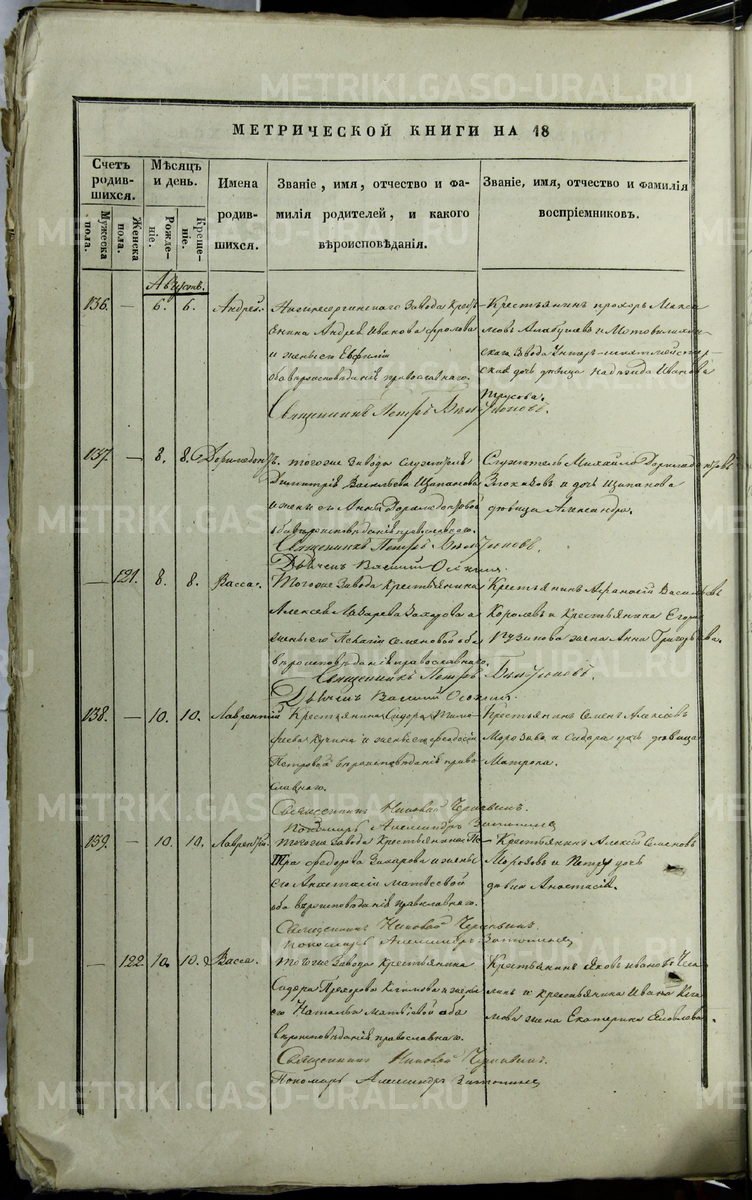 METRIKI.GASO-URAL.RU
МЕТРИЧЕСКОЙ КНИГИ НА 18
Счетъ родив-шихся.
Мужеска пола.
Женска пола.
Мѣсяцъ и день.
Рожде-ніе.
Креще-ніе.
Имена
родив-
шихся.
Званіе, имя, отчество и фа-
милія родителей, и какого
вѣроисповѣданія.
Званіе, имя, отчество и фамилія
воспріемниковъ.
Августъ.
136. — 6. 6. Андрей.
Нижнесергинскаго Завода Кресть
янинъ Андрей Ивановъ Фроловъ
и жена его Евфимія
оба вѣроисповѣданія православнаго.
Священникъ Петръ
Крестьянинъ Прохоръ Макси
мовъ и Мотовилихин-
скаго Завода
дочь дѣвица Надежда Иванова
137. — 8. 8. Доримедонтъ.
Тогоже Завода Служитель
Димитрій Васильевъ Щипановъ
и жена его Анна Доримедонтова
оба вѣроисповѣданія православнаго.
Священникъ Петръ
Дьячекъ Василий
Служитель Михайло Доримедонтовъ
и дочь Щипанова
дѣвица Александра.
— 121. 8. 8. Васса.
Тогоже Завода Крестьянина
Алексея Лазарева Захарова и
жены его Семеновой оба
вѣроисповѣданія православнаго.
Священникъ Петръ
Дьячекъ Василий
Крестьянинъ Афанасій Васильевъ
Королевъ и Крестьянина Егора
жена Анна Григорьева.
138. — 10. 10. Лаврентій
Крестьянина Сидора Тимо
феева и жены его Феодосіи
Петровой вѣроисповѣданія право
славнаго.
Священникъ Николай
Пономарь Александръ
Крестьянинъ Семенъ Алексѣевъ
Морозовъ и Сидора дочь дѣвица
Матрона.
139. — 10. 10. Лаврентій.
Тогоже Завода Крестьянина Пе
тра Федорова Захарова и жены
его Анастасіи Матвеевой
оба вѣроисповѣданія православнаго.
Священникъ Николай
Пономарь Александръ
Крестьянинъ Алексѣй Семеновъ
Морозовъ и Петра дочь
дѣвица Анастасія.
— 122. 10. 10. Васса.
Тогоже Завода Крестьянина
Сидора Прохорова и жены
его Натальи Матвѣевой оба
вѣроисповѣданія православнаго.
Священникъ Николай
Пономарь Александръ
Крестьянинъ Яковъ Ивановъ
и крестьянина Ивана
жена Екатерина Яковлева.